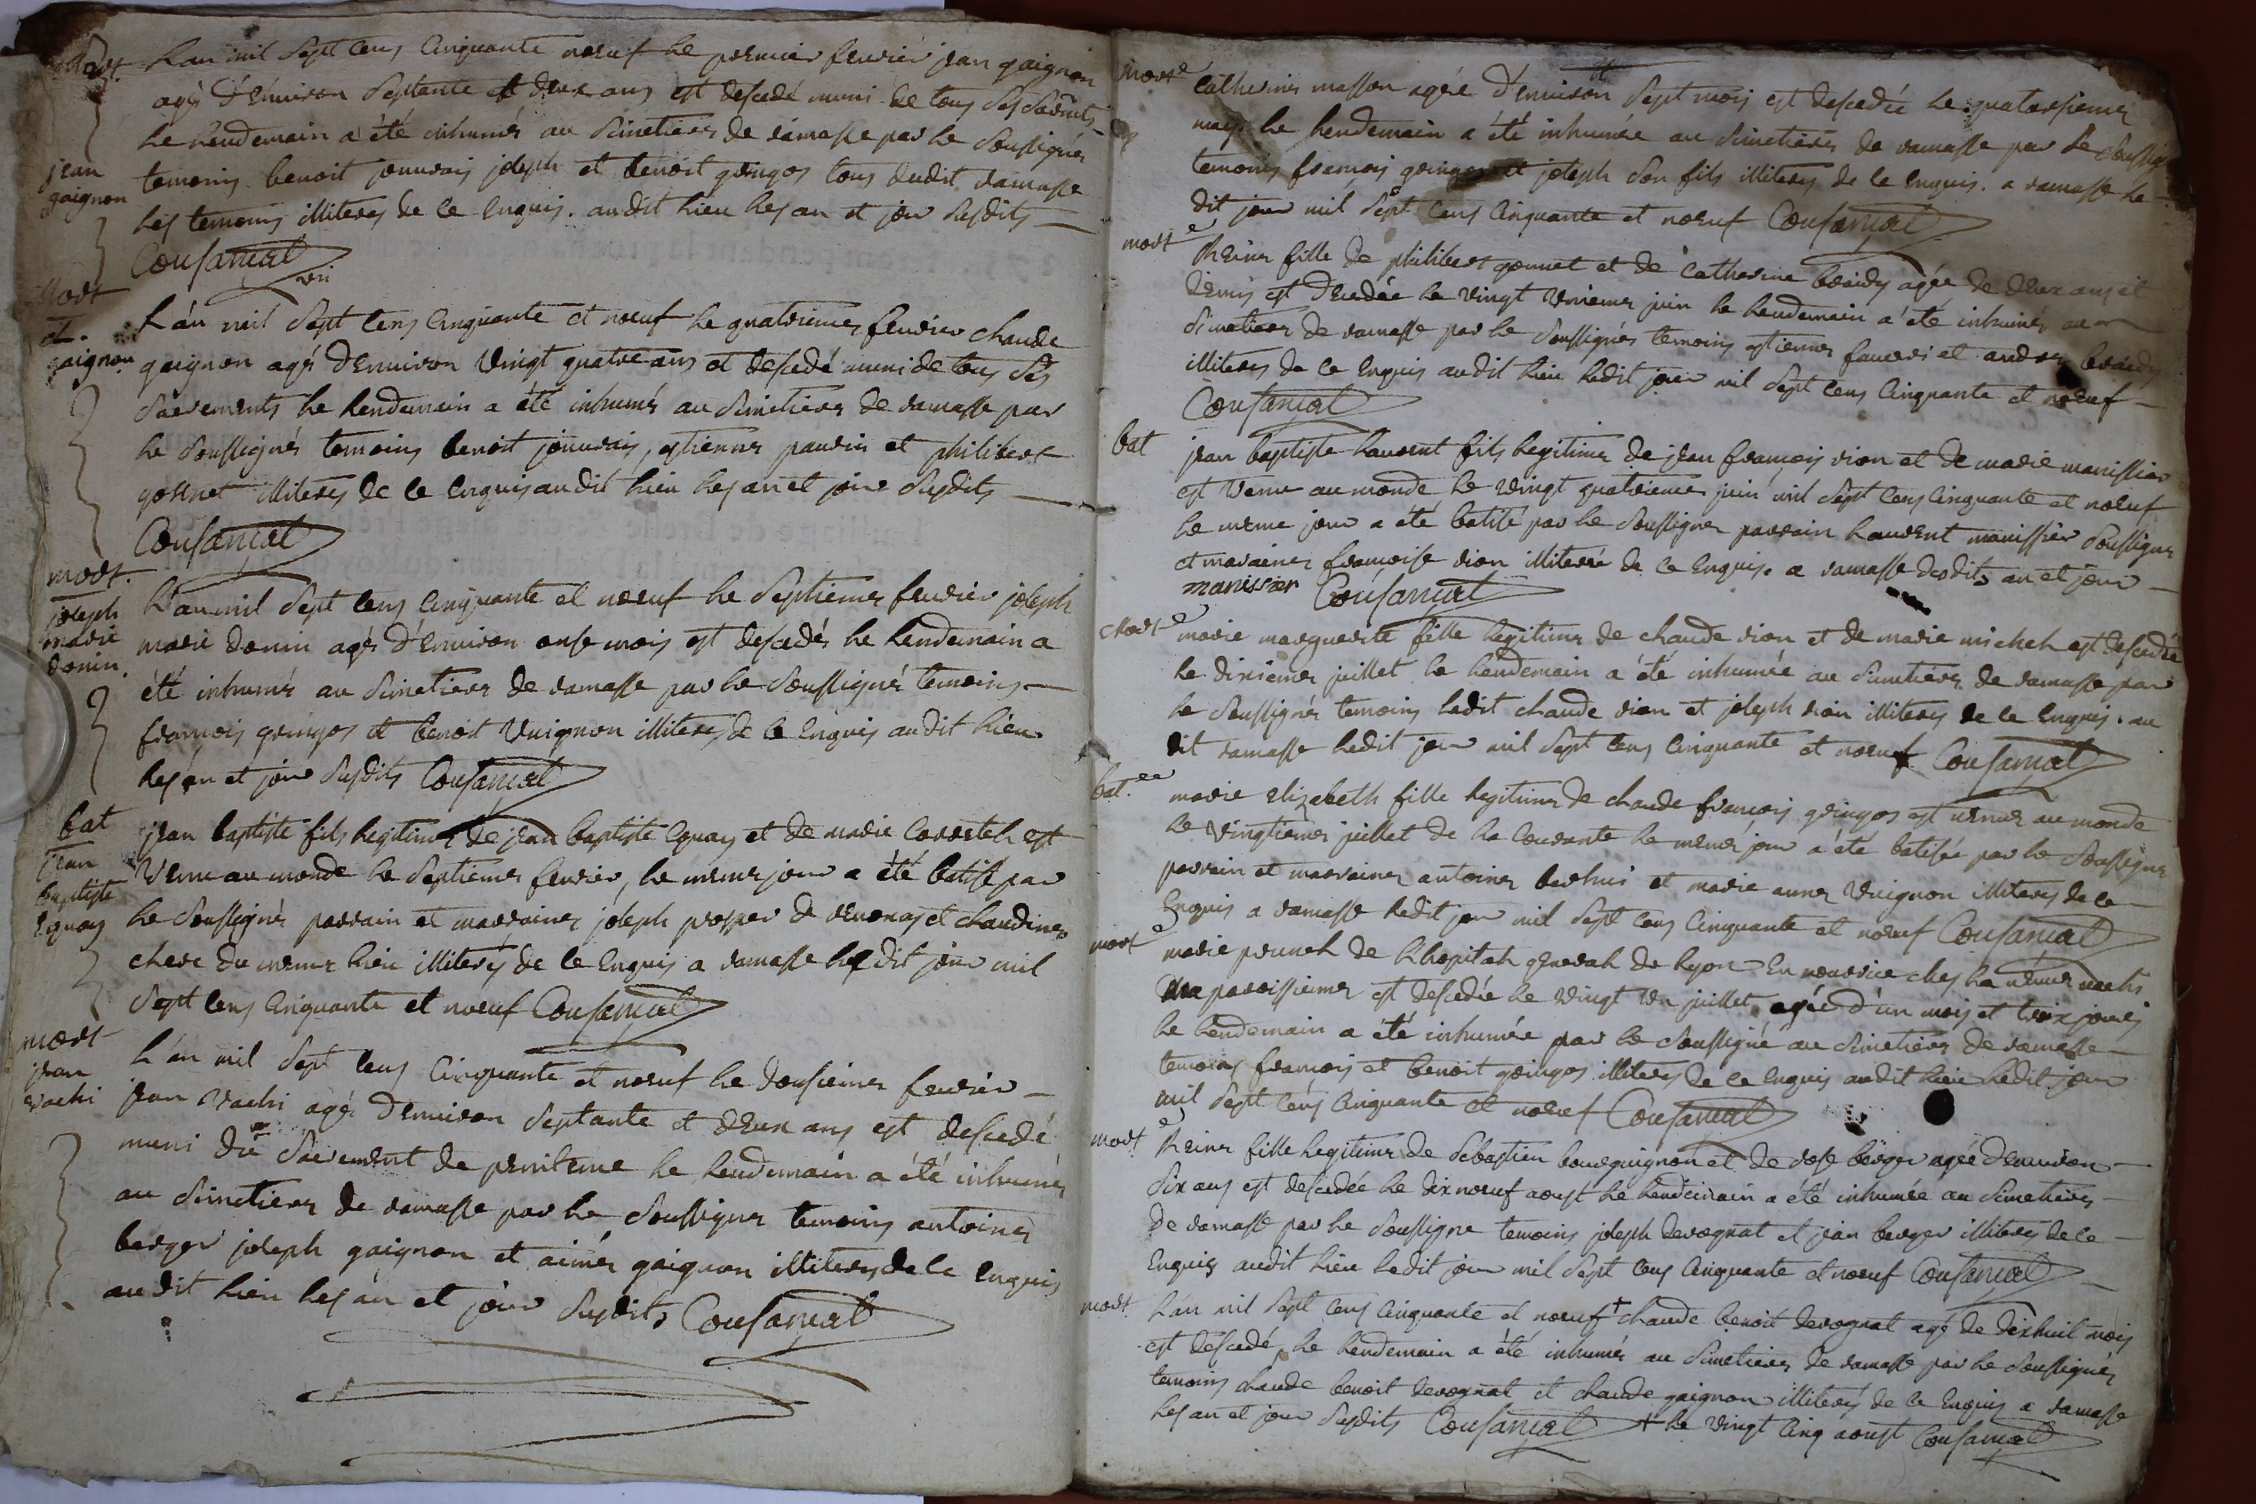 Mort.
L'an mil sept cens cinquante noeuf le premier fevrier jean gaignon
agé d'environ septante et deux ans est descedé muni de tous ses sacrents
le lendemain a été inhumés au simetiere de ramasse par le soussignés
jean gaignon
temoins benoit jouvrais joseph et benoit gringos tous dudit ramasse
les temoins illiteres de ce enquis. audit lieu les an et jour susdits
Cousançat
Mort
cl. gaignon
L'an mil sept cens cinquante et noeuf le quatrieme fevrier claude
gaignon agé d'environ vingt quatre ans et descedé muni de tous ses
sacrements le lendemain a été inhumés au simetiere de ramasse par
le soussignés temoins benoit jouvrais, estienne paurin et philibert
gonnet illiteres de ce enquis audit lieu les an et jour susdits
Cousançat
mort.
joseph marie donin.
L'an mil sept cens cinquante et noeuf le septieme fevrier joseph
marie donin agés d'environ onse mois est descedés le lendemain a
été inhumés au simetiere de ramasse par le soussignés temoins
francois gringos et benoit Vuignon illiteres de ce enquis audit lieu
les an et jour susdits Cousançat
bat
jean baptiste equoy
jean baptiste fils legitime de jean baptiste Equoy et de marie Corretel est
venu au monde le septieme fevrier, le meme jour a été batisé par
le soussignés parrain et marraine joseph prosper de and claudine
chere du meme lieu illiteres de ce enquis a ramasse ledit jour mil
sept cens cinquante et noeuf Cousançat
mort
jean vachi
L'an mil sept cens cinquante et noeuf le dousieme fevrier
jean vachi agé d'environ septante et deux ans est descedé
muni du sacrement de penitence le lendemain a été inhumés
au simetiere de ramasse par le soussigne temoins antoine
berger joseph gaignon et aimé gaignon illiteres de ce enquis
audit lieu les an et jour susdits Cousançat
morte
Catherine masson agée d'environ sept mois est descedée le quatorsieme
may. le lendemain a été inhumée au simetiere de ramasse par le soussigné
temoins francois gringos et joseph son fils illiteres de ce enquis. a ramasse le
dit jour mil sept cens cinquante et noeuf Cousançat
morte
Reine fille de philibert gonnet et de Catherine beaidy agée de deux ans et
demis est decedée le vingt unieme juin le lendemain a été inhumés au
simetiere de ramasse par le soussignés temoins estienne et andre beaidy
illiteres de ce enquis audit lieu ledit jour mil sept cens cinquante et noeuf
Cousançat
bat
jean baptiste laurent fils legitime de jean françois rion et de marie manissier
est venu au monde le vingt quatrieme juin mil sept cens cinquante et noeuf
le meme jour a été batisé par le soussigne parrain laurent manissier soussigne
et maraine françoise rion illiterée de ce enquis. a ramasse desdits an et jour
manissier Cousançat
Morte
marie marguerite fille legitime de claude rion et de marie michel est descedée
le dixieme juillet le lendemain a été inhumée au simetiere de ramasse par
le soussignés temoins ledit claude rion et joseph rion illiteres de ce enquis. au
dit ramasse ledit jour mil sept cens cinquante et noeuf Cousançat
bat.ee
marie elizabeth fille legitime de claude françois gringos est venue au monde
le vingtieme juillet de la courante le meme jour a été batisée par le soussigne
parrain et marraine antoine and marie anne Vuignon illiteres de ce
enquis a ramasse ledit jour mil sept cens cinquante et noeuf Cousançat
morte
marie prunel de l'hopital general de lyon en nourrice ches la veuve vachi
ma paroissienne est descedée le vingt un juillet agée d'un mois et trois jours
le lendemain a été inhumée par le soussigné au simetiere de ramasse
temoins francois et benoit gringos illiteres de ce enquis audit lieu ledit jour
mil sept cens cinquante et noeuf Cousançat
morte
Reine fille legitime de Sebastien bourguignon et de rose berger agée d'environ
six ans est descedée le dix noeuf aoust le lendemain a été inhumée au simetiere
de ramasse par le soussigne temoins joseph derognat et jean berger illiteres de ce
enquis audit lieu ledit jour mil sept cens cinquante et noeuf Cousançat
mort
L'an mil sept cens cinquante et noeuf + claude benoit derognat agé de dixhuit mois
est descedé, le lendemain a été inhumés au simetiere de ramasse par le soussignés
temoins claude benoit derognat et claude gaignon illiterés de ce enquis a ramasse
les an et jour susdits Cousançat + le vingt cinq aoust Cousançat